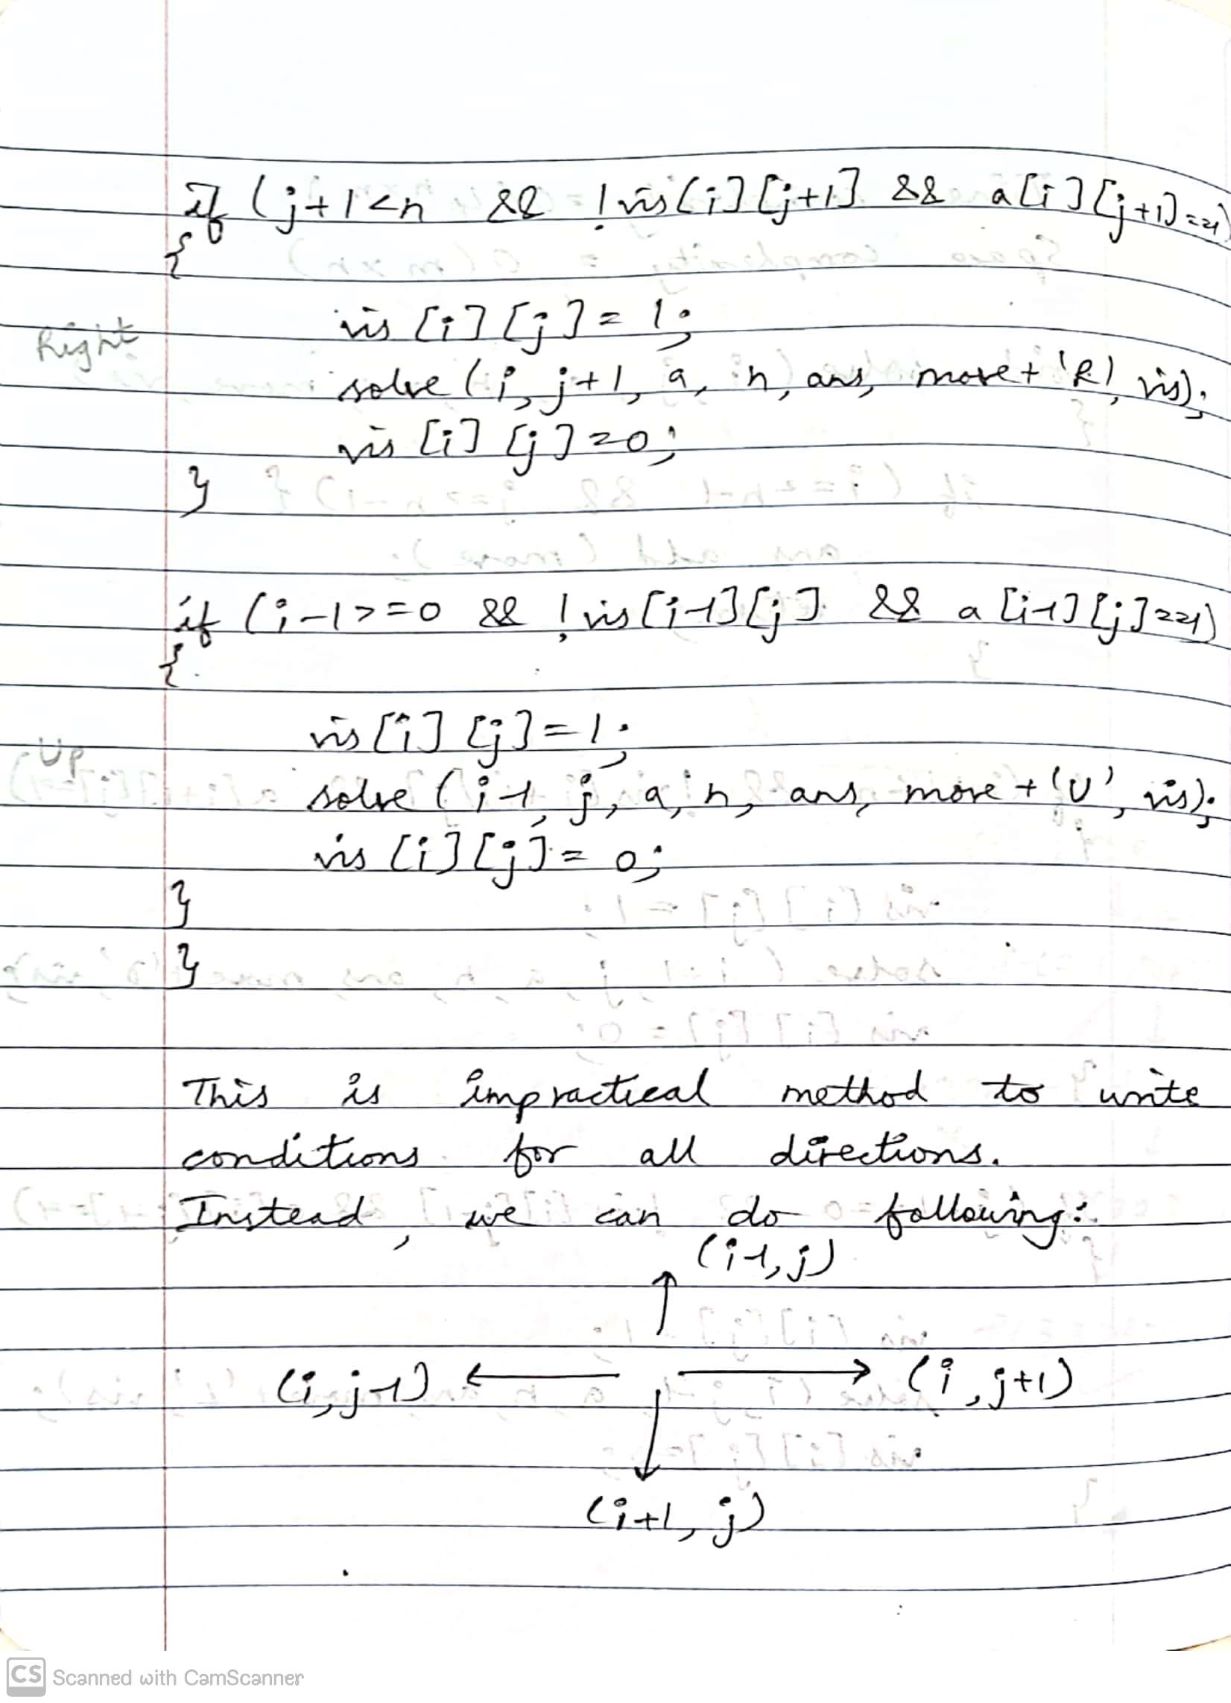 if (j+1<n && !vis[i][j+1] && a[i][j+1]==1)
{
Right
vis[i][j]=1;
solve(i, j+1, a, n, ans, move+'R', vis);
vis[i][j]=0;
}
if (i-1>=0 && !vis[i-1][j] && a[i-1][j]==1)
{
Up
vis[i][j]=1;
solve(i-1, j, a, n, ans, move+'U', vis);
vis[i][j]=0;
}
}
This is impractical method to write
conditions for all directions.
Instead, we can do following:
(i-1, j)
(i, j-1) ← → (i, j+1)
(i+1, j)
CS Scanned with CamScanner